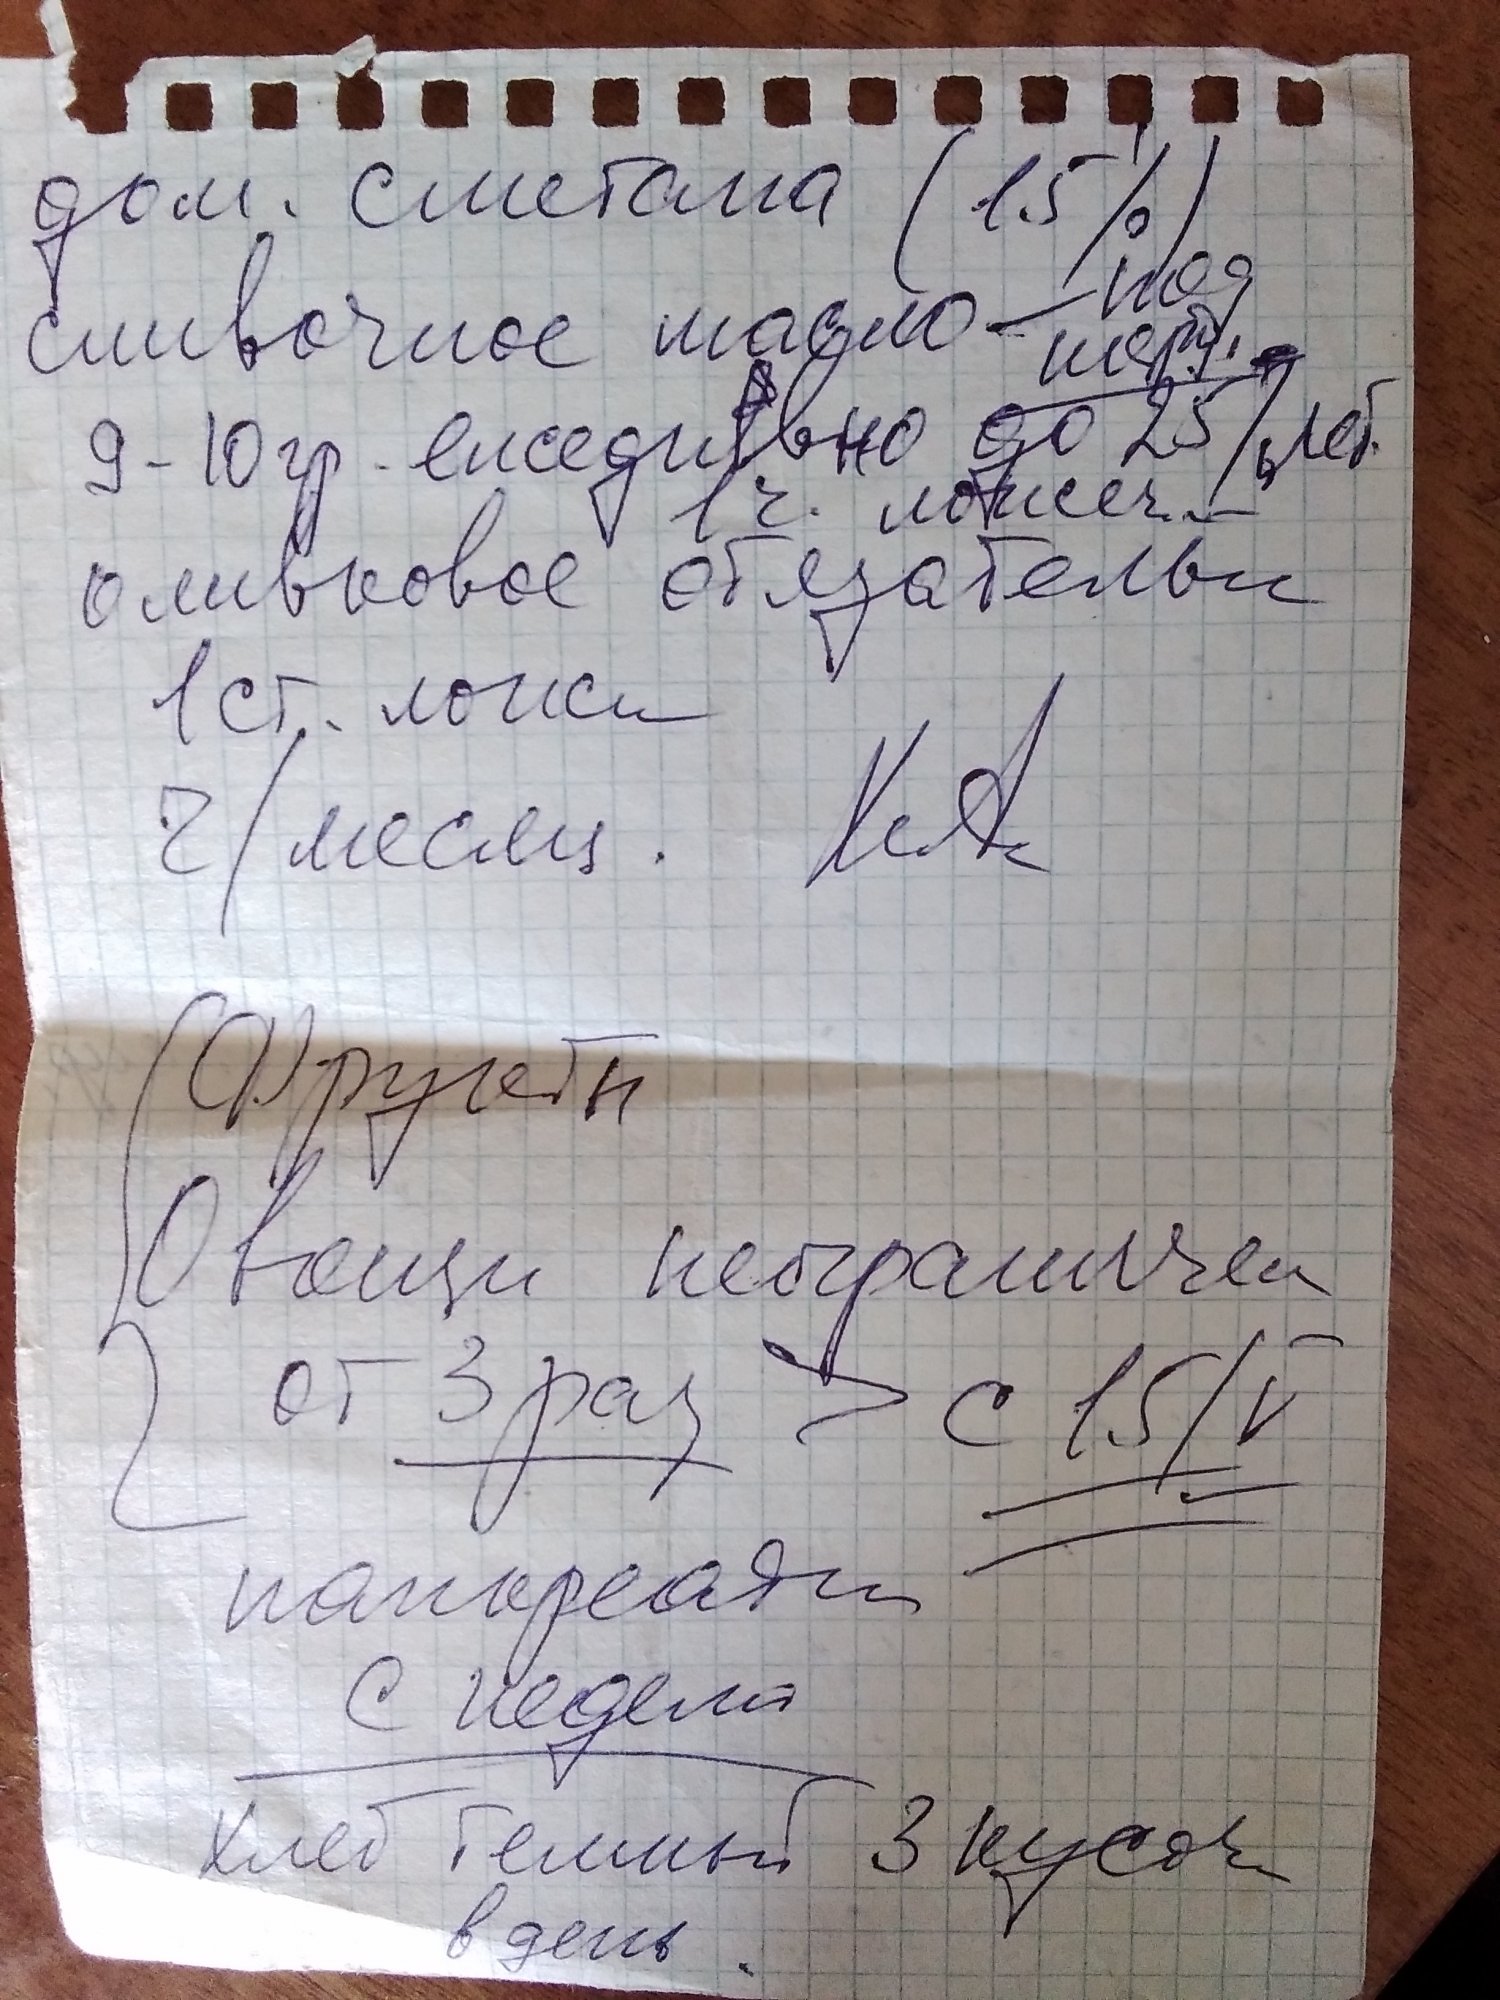 дом. сметана (15%)
сливочное масло – под
9-10 гр. ежедневно до 25 лет.
1 ч. ложеч.
оливковое обязательн
1 ст. ложк
ч/месяц.
Фрукты
Овощи неограничен
от 3 раз > с 15/V
с недел
Хлеб темный 3 кусоч
в день.